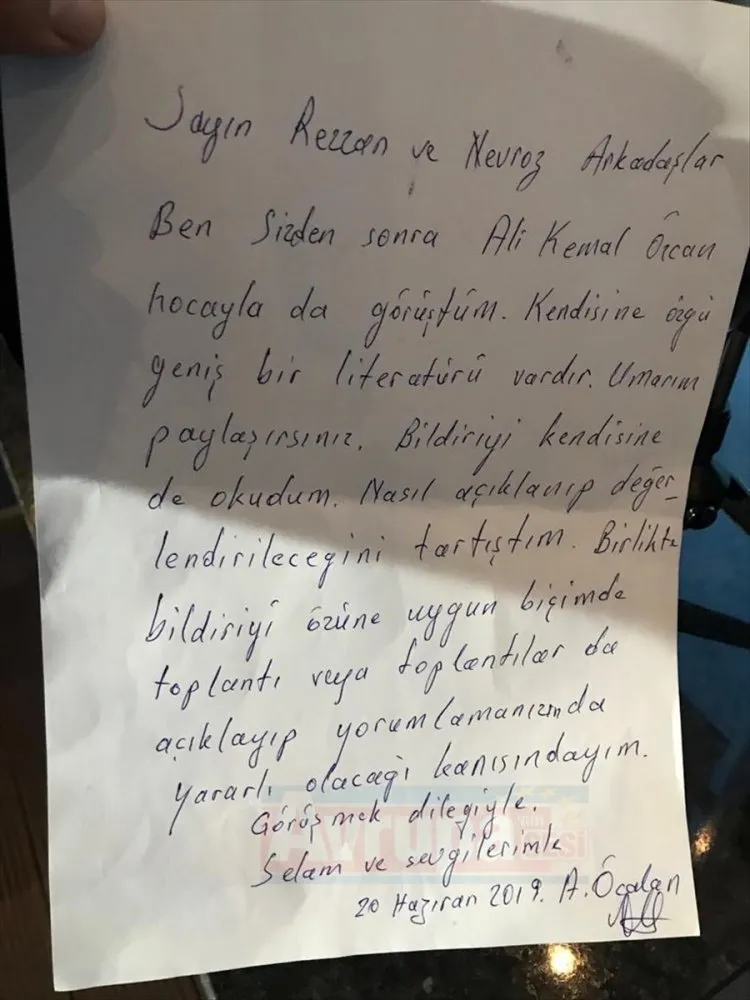 Sayın Rezzan ve Nevroz Arkadaşlar
Ben Sizden sonra Ali Kemal Özcan
hocayla da görüştüm. Kendisine özgü
geniş bir literatürü vardır. Umarım
paylaşırsınız. Bildiriyi kendisine
de okudum. Nasıl açıklanıp değer_
lendirileceğini tartıştım. Birlikte
bildiriyi özüne uygun biçimde
toplantı veya toplantılar da
açıklayıp yorumlamanızında
yararlı olacağı kanısındayım.
Görüşmek dileğiyle.
Selam ve sevgilerimle
20 Haziran 2019. A. Öcalan